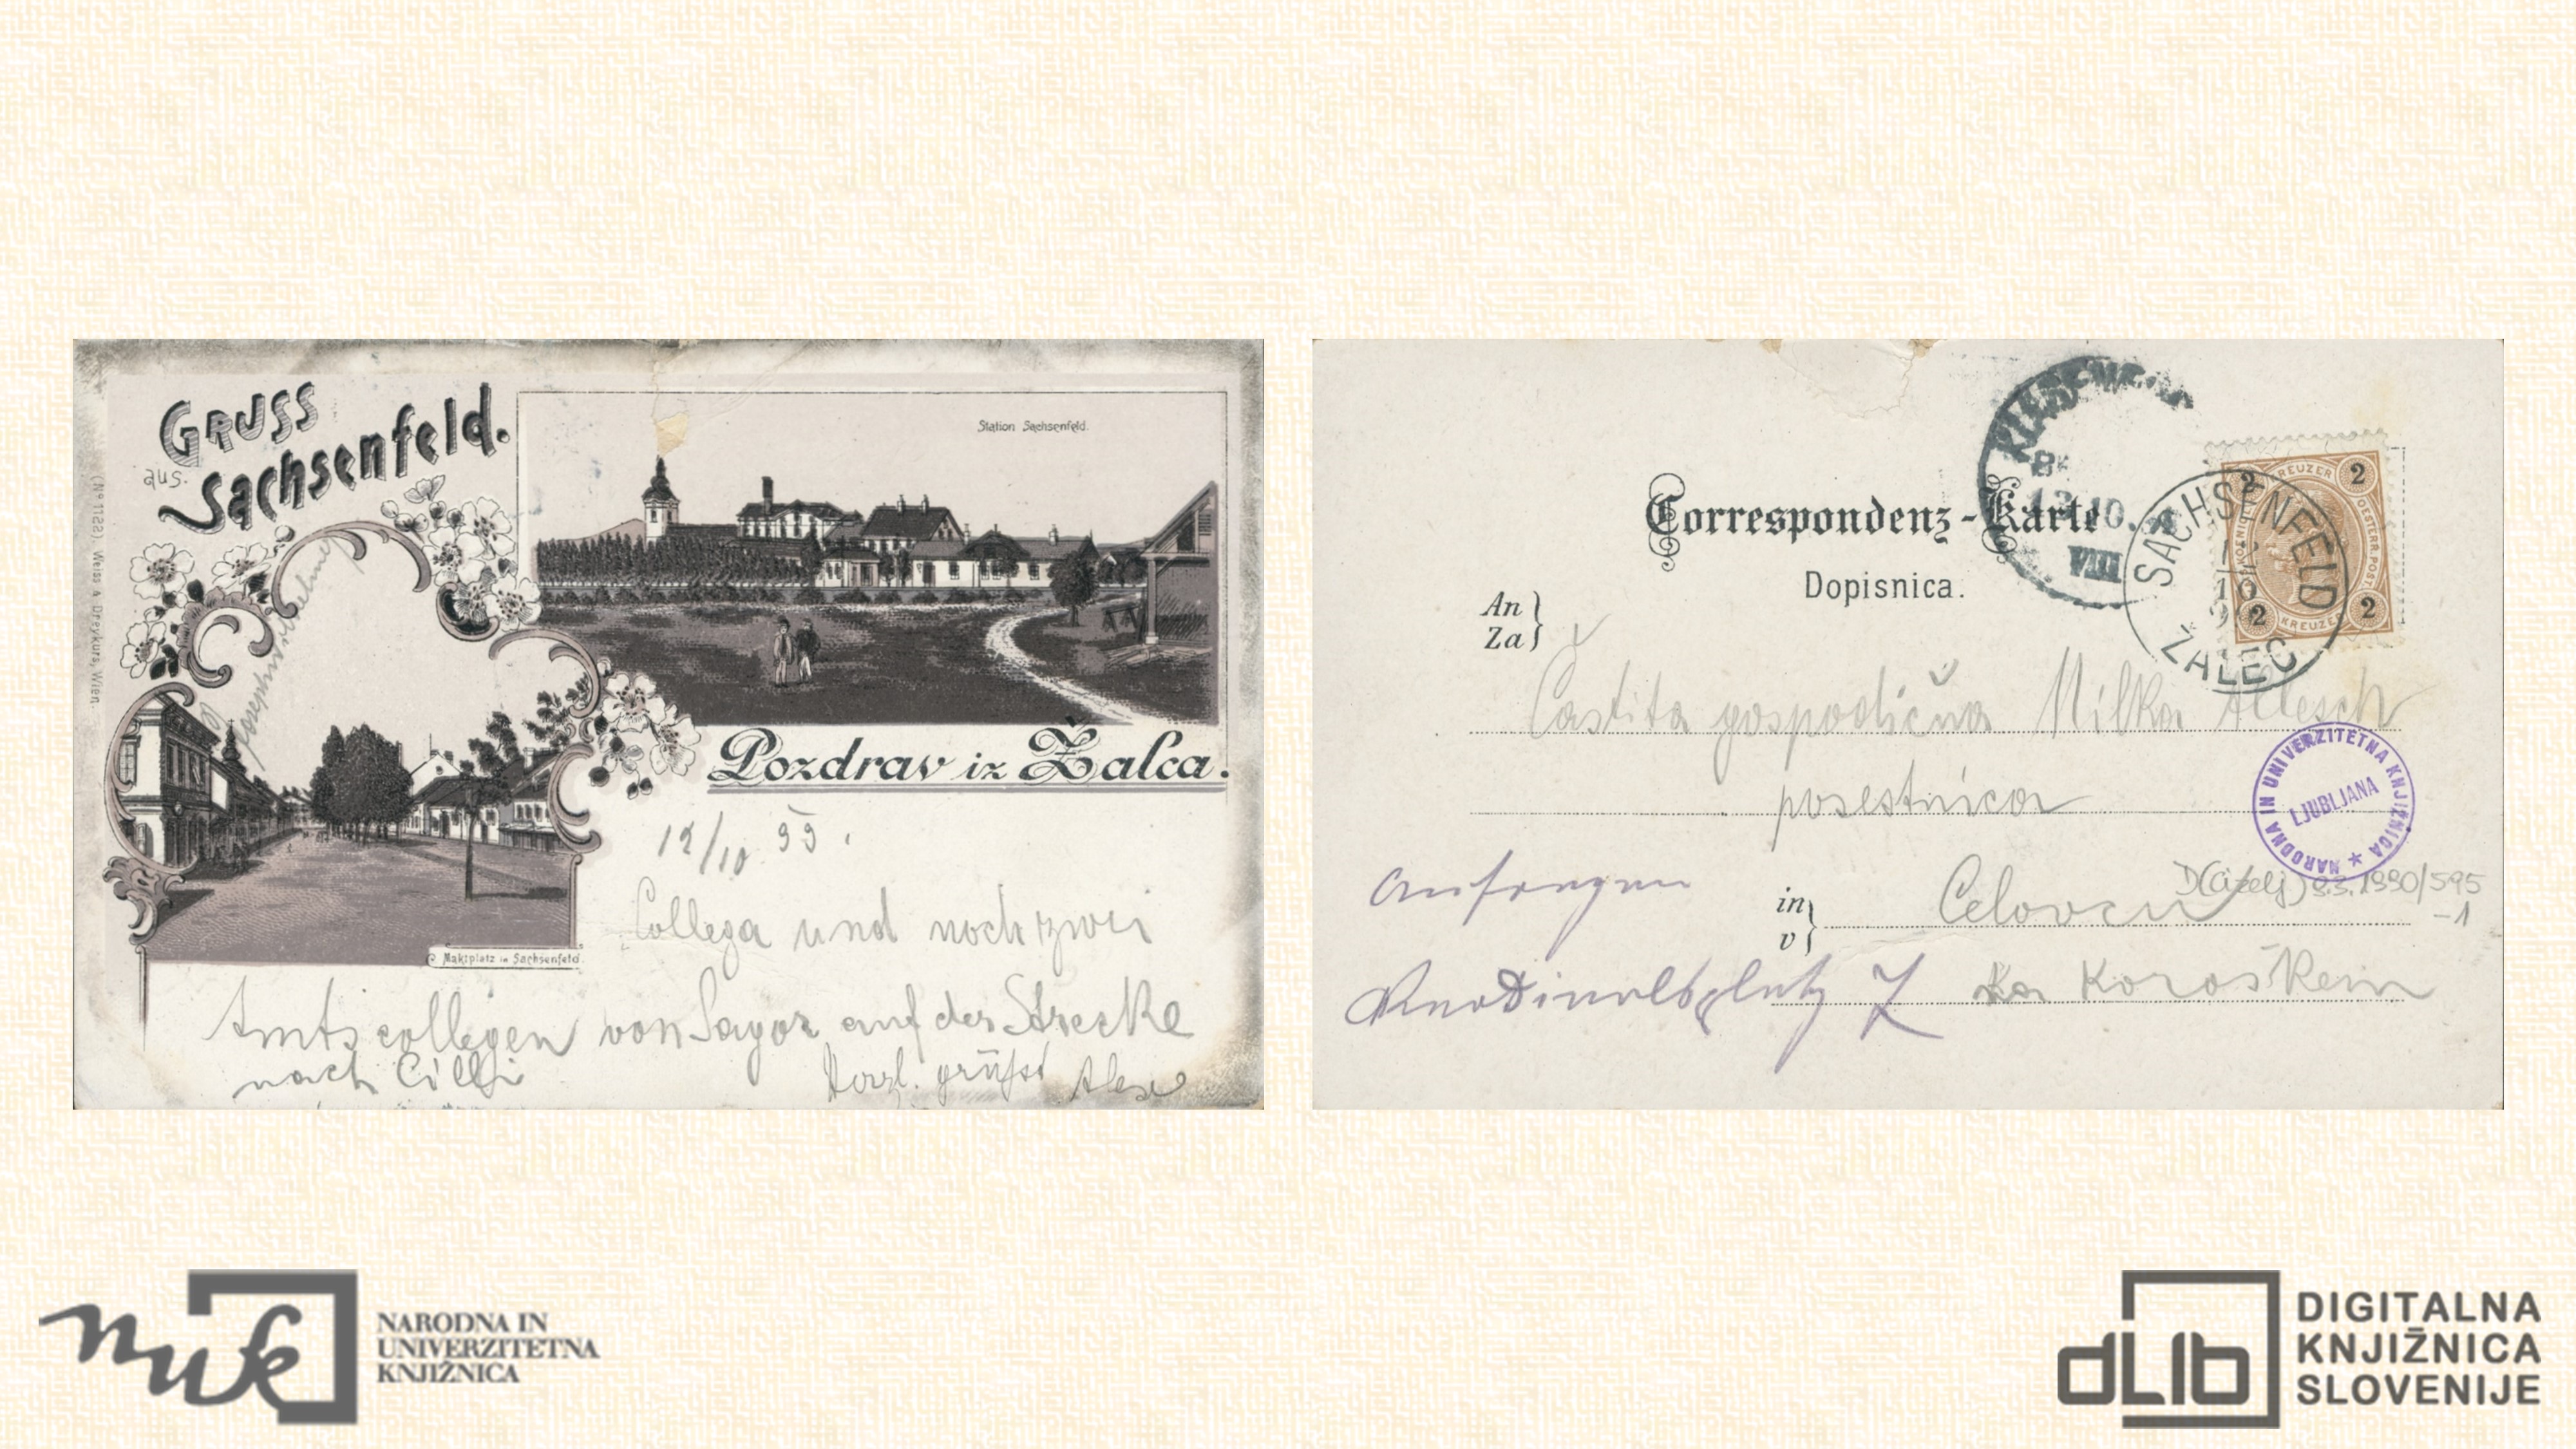 GRUSS
aus.
Sachsenfeld.
Station Sachsenfeld.
(Nº 1122). Weiss & Dreykurs, Wien.
Pozdrav iz Žalca.
Maktplatz in Sachsenfeld.
12/10 99.
Collega und noch zwei
Amtscollegen von Sagor auf der Strecke
nach Cilli
Herzl. grüßt Alex
Correspondenz-Karte
Dopisnica.
An
Za
SACHSENFELD
ŽALEC
12
10
2 KREUZER 2
OESTERR. POST
2 KREUZER 2
12.10.
VIII
Častita gospodična Milka Allesch
posestnica
NARODNA IN UNIVERZITETNA KNJIŽNICA ★
LJUBLJANA
D(Čiželj) 9.3.1990/595
-1
in
v
Celovcu
Kardinalsplatz 7
na Koroškem
nuk
NARODNA IN
UNIVERZITETNA
KNJIŽNICA
dLib
DIGITALNA
KNJIŽNICA
SLOVENIJE